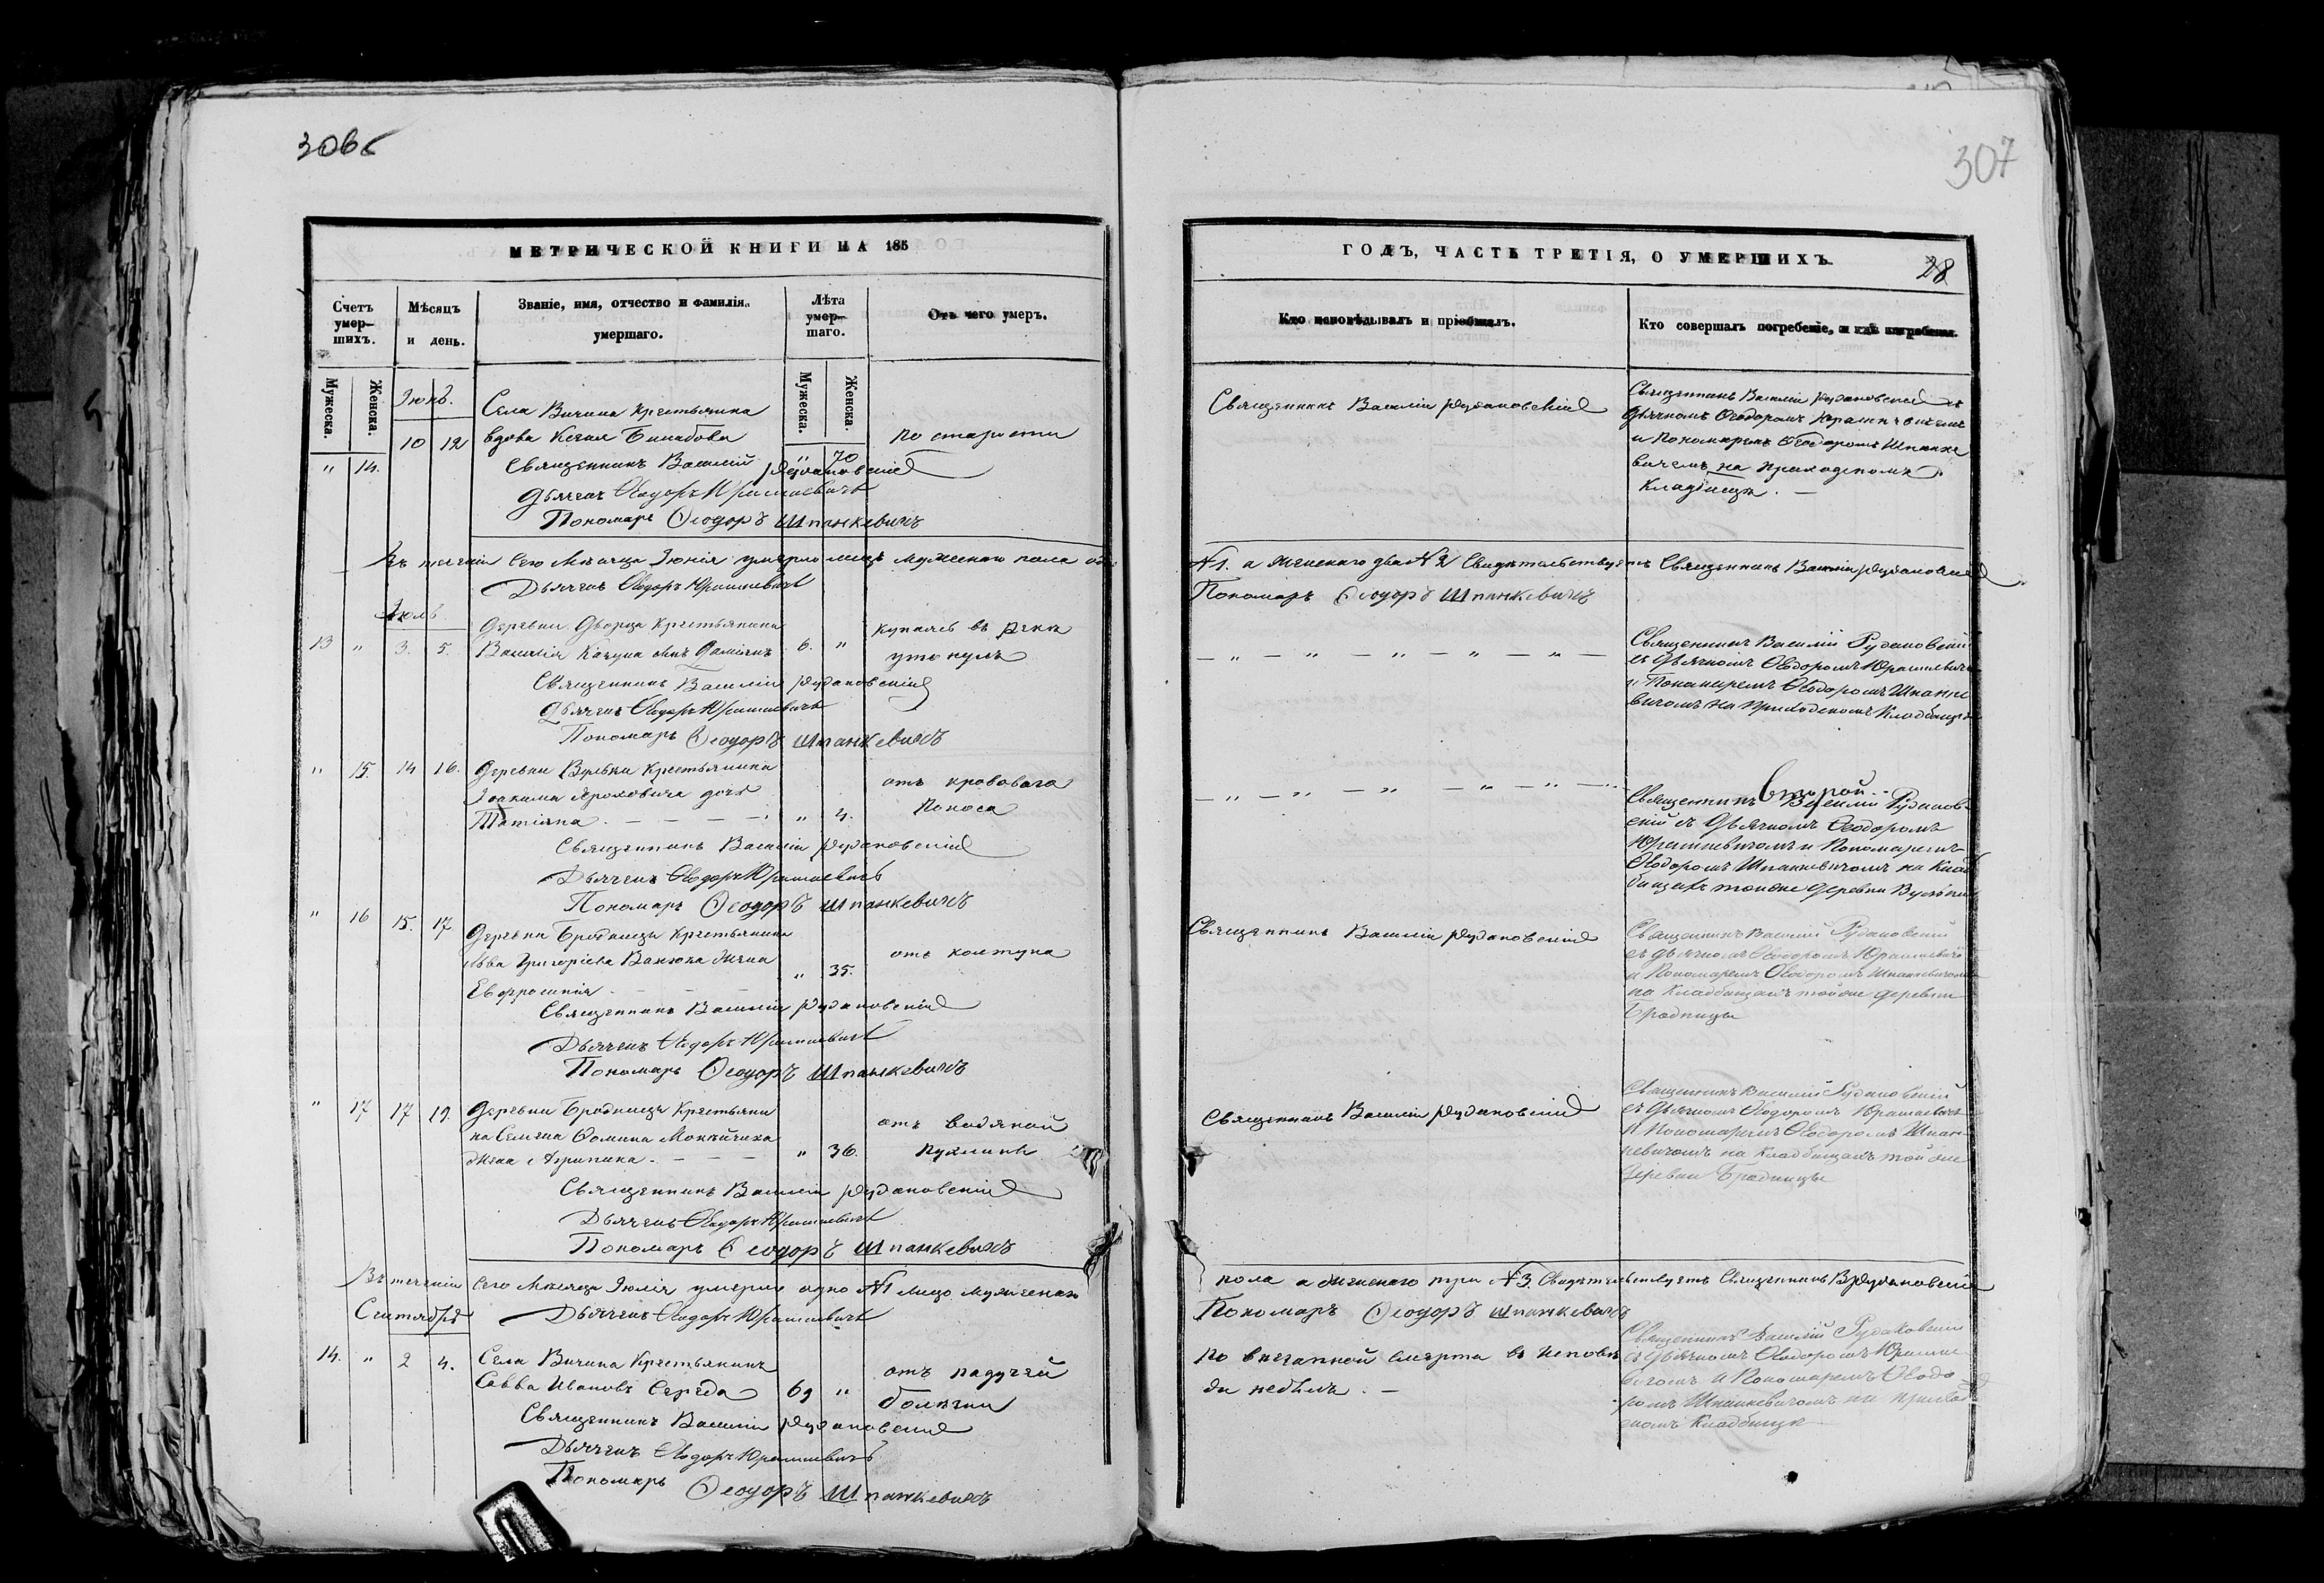 306б
307
МЕТРИЧЕСКОЙ КНИГИ НА 185
Счетъ умер-шихъ.
Мѣсяцъ и день.
Званіе, имя, отчество и фамилія умершаго.
Лѣта умер-шаго.
Отъ чего умеръ.
Мужеска.
Женска.
Мужеска.
Женска.
Іюнь.
Села Вичина Крестьянина
" 14. 10 12 вдова " 70 по старости
Священникъ Василій Рудаковскій
Дьячекъ Ѳеодоръ Юрашкевичъ
Пономарь Ѳеодоръ Шпанкевичъ
Въ теченіи Сего Мѣсяца Іюнія умерло лицъ мужескаго пола
Дьячекъ Ѳеодоръ Юрашкевичъ
Іюль
Деревни Дворца Крестьянина купаясь въ рѣкѣ
13 " 3. 5. Василія сынъ 6. " утонулъ
Священникъ Василій Рудаковскій
Дьячекъ Ѳеодоръ Юрашкевичъ
Пономарь Ѳеодоръ Шпанкевичъ
" 15. 14 16. Деревни Вульки Крестьянина
Іоакима дочь отъ кроваваго
Татіяна. " 4. поноса
Священникъ Василій Рудаковскій
Дьячекъ Ѳеодоръ Юрашкевичъ
Пономарь Ѳеодоръ Шпанкевичъ
" 16 15. 17. Деревни Бродницы Крестьянина
Льва Григоріева жена " 35. отъ колтуна
Евфросинія
Священникъ Василій Рудаковскій
Дьячекъ Ѳеодоръ Юрашкевичъ
Пономарь Ѳеодоръ Шпанкевичъ
" 17 17 19. Деревни Бродницы Крестьяни
на Семена Ѳомина отъ водяной
жена Агрипина. " 36. пухлины
Священникъ Василій Рудаковскій
Дьячекъ Ѳеодоръ Юрашкевичъ
Пономарь Ѳеодоръ Шпанкевичъ
Въ теченіи Сего Мѣсяца Іюлія умерло одно №1 лицо мужескаго
Сентябрь Дьячекъ Ѳеодоръ Юрашкевичъ
14. " 2 4. Села Вичина Крестьянинъ отъ падучей
Савва Ивановъ Середа 69 " болѣзни
Священникъ Василій Рудаковскій
Дьячекъ Ѳеодоръ Юрашкевичъ
Пономарь Ѳеодоръ Шпанкевичъ
ГОДЪ, ЧАСТЬ ТРЕТІЯ, О УМЕРШИХЪ.
28
Кто исповѣдывалъ и пріобщалъ.
Кто совершалъ погребеніе, и гдѣ погребены.
Священникъ Василій Рудаковскій
Священникъ Василій Рудаковскій съ
Дьячкомъ Ѳеодоромъ Юрашкевичемъ
и Пономаремъ Ѳеодоромъ Шпанке
вичемъ на приходскомъ
кладбищѣ. —
№1. а женскаго два №2 Свидѣтельствуетъ Священникъ Василій Рудаковскій
Пономарь Ѳеодоръ Шпанкевичъ
— " — " — " — " — " —
Священникъ Василій Рудаковскій
съ Дьячкомъ Ѳеодоромъ Юрашкевичемъ
и Пономаремъ Ѳеодоромъ Шпанке
вичомъ на приходскомъ кладбищѣ
— " — " — " — " — " —
второй
Священникъ Василій Рудаков-
скій съ Дьячкомъ Ѳеодоромъ
Юрашкевичомъ и Пономаремъ
Ѳеодоромъ Шпанкевичомъ на клад
бищахъ тойже деревни Вульки
Священникъ Василій Рудаковскій
Священникъ Василій Рудаковскій
съ Дьячкомъ Ѳеодоромъ Юрашкевичомъ
и Пономаремъ Ѳеодоромъ Шпанкевичомъ
на кладбищахъ тойже деревни
Бродницы
Священникъ Василій Рудаковскій
Священникъ Василій Рудаковскій
съ Дьячкомъ Ѳеодоромъ Юрашкевичомъ
и Пономаремъ Ѳеодоромъ Шпан
кевичомъ на кладбищахъ тойже
деревни Бродницы
пола а женскаго три №3. Свидѣтельствуетъ Священникъ В Рудаковскій
Пономарь Ѳеодоръ Шпанкевичъ
по внезапной смерти въ исповѣ
ди небылъ. —
Священникъ Василій Рудаковскій
съ Дьячкомъ Ѳеодоромъ Юрашке
вичомъ и Пономаремъ Ѳеодо
ромъ Шпанкевичомъ на приход
скомъ кладбищѣ